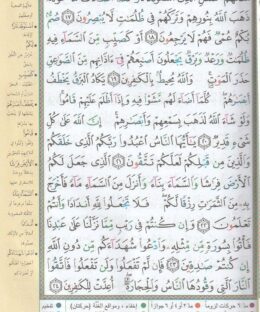 ذَهَبَ ٱللَّهُ بِنُورِهِمْ وَتَرَكَهُمْ فِى ظُلُمَٰتٍ لَّا يُبْصِرُونَ ١٧ صُمٌّۢ
بُكْمٌ عُمْىٌ فَهُمْ لَا يَرْجِعُونَ ١٨ أَوْ كَصَيِّبٍ مِّنَ ٱلسَّمَآءِ فِيهِ
ظُلُمَٰتٌ وَرَعْدٌ وَبَرْقٌ يَجْعَلُونَ أَصَٰبِعَهُمْ فِىٓ ءَاذَانِهِم مِّنَ ٱلصَّوَٰعِقِ
حَذَرَ ٱلْمَوْتِ وَٱللَّهُ مُحِيطٌۢ بِٱلْكَٰفِرِينَ ١٩ يَكَادُ ٱلْبَرْقُ يَخْطَفُ
أَبْصَٰرَهُمْ كُلَّمَآ أَضَآءَ لَهُم مَّشَوْا۟ فِيهِ وَإِذَآ أَظْلَمَ عَلَيْهِمْ قَامُوا۟
وَلَوْ شَآءَ ٱللَّهُ لَذَهَبَ بِسَمْعِهِمْ وَأَبْصَٰرِهِمْ إِنَّ ٱللَّهَ عَلَىٰ كُلِّ
شَىْءٍ قَدِيرٌ ٢٠ يَٰٓأَيُّهَا ٱلنَّاسُ ٱعْبُدُوا۟ رَبَّكُمُ ٱلَّذِى خَلَقَكُمْ
وَٱلَّذِينَ مِن قَبْلِكُمْ لَعَلَّكُمْ تَتَّقُونَ ٢١ ٱلَّذِى جَعَلَ لَكُمُ
ٱلْأَرْضَ فِرَٰشًا وَٱلسَّمَآءَ بِنَآءً وَأَنزَلَ مِنَ ٱلسَّمَآءِ مَآءً فَأَخْرَجَ
بِهِۦ مِنَ ٱلثَّمَرَٰتِ رِزْقًا لَّكُمْ فَلَا تَجْعَلُوا۟ لِلَّهِ أَندَادًا وَأَنتُمْ
تَعْلَمُونَ ٢٢ وَإِن كُنتُمْ فِى رَيْبٍ مِّمَّا نَزَّلْنَا عَلَىٰ عَبْدِنَا
فَأْتُوا۟ بِسُورَةٍ مِّن مِّثْلِهِۦ وَٱدْعُوا۟ شُهَدَآءَكُم مِّن دُونِ ٱللَّهِ
إِن كُنتُمْ صَٰدِقِينَ ٢٣ فَإِن لَّمْ تَفْعَلُوا۟ وَلَن تَفْعَلُوا۟ فَٱتَّقُوا۟
ٱلنَّارَ ٱلَّتِى وَقُودُهَا ٱلنَّاسُ وَٱلْحِجَارَةُ أُعِدَّتْ لِلْكَٰفِرِينَ ٢٤
مد ٦ حركات لزوما ● مد ٢ أو ٤ أو ٦ جوازا ● إخفاء، ومواقع الغنة (حركتان) ● تفخيم